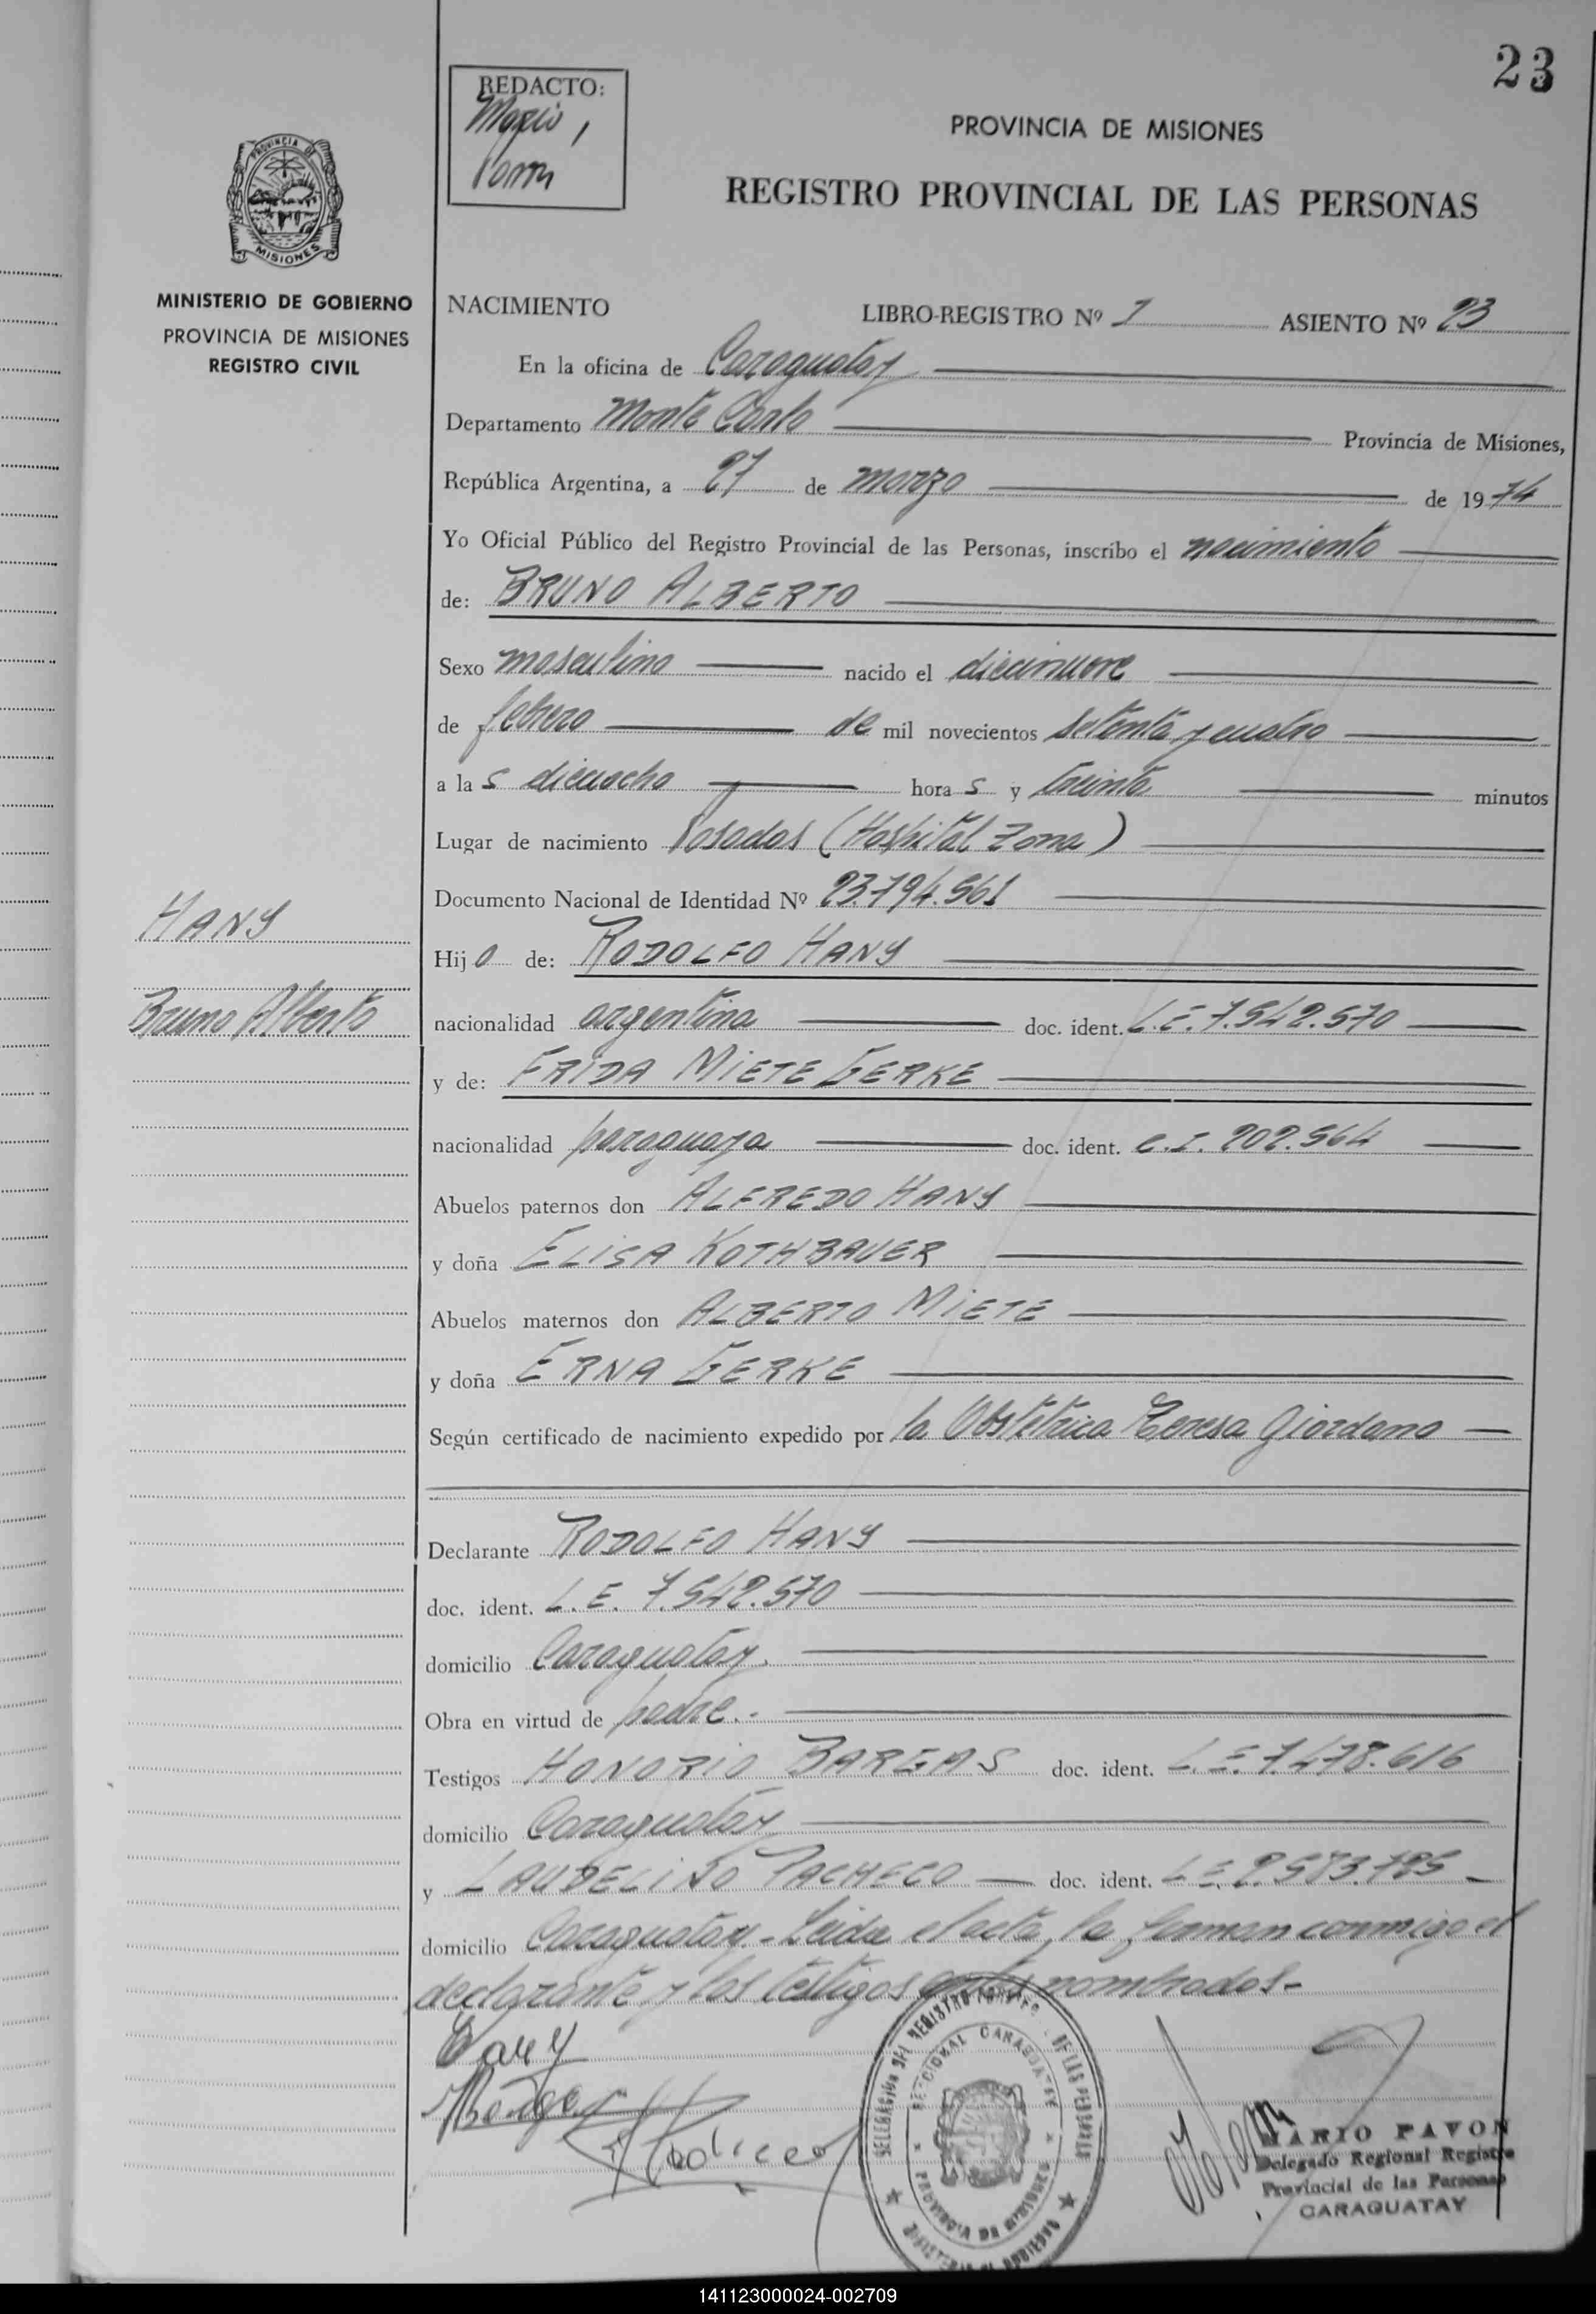 23
REDACTO:
Mario
PROVINCIA DE MISIONES
REGISTRO PROVINCIAL DE LAS PERSONAS
PROVINCIA DE
MISIONES
MINISTERIO DE GOBIERNO
PROVINCIA DE MISIONES
REGISTRO CIVIL
NACIMIENTO LIBRO-REGISTRO Nº 1 ASIENTO Nº 23
En la oficina de Caraguatay
Departamento Monte Carlo Provincia de Misiones,
República Argentina, a 27 de marzo de 1974
Yo Oficial Público del Registro Provincial de las Personas, inscribo el nacimiento
de: BRUNO ALBERTO
Sexo masculino nacido el diecinueve
de febrero de mil novecientos setenta y cuatro
a las dieciocho horas y treinta minutos
Lugar de nacimiento Posadas (Hospital Zona)
Documento Nacional de Identidad Nº 23.794.561
HANY
Hijo de: RODOLFO HANY
Bruno Alberto
nacionalidad argentina doc. ident. L.E. 7.542.570
y de: FRIDA MIETE GERKE
nacionalidad paraguaya doc. ident. C.I. 202.564
Abuelos paternos don ALFREDO HANY
y doña ELISA KOTHBAUER
Abuelos maternos don ALBERTO MIETE
y doña ERNA GERKE
Según certificado de nacimiento expedido por la Obstétrica Teresa Giordano
Declarante RODOLFO HANY
doc. ident. L.E. 7.542.570
domicilio Caraguatay.
Obra en virtud de padre.-
Testigos HONORIO doc. ident. L.E. 7.478.616
domicilio Caraguatay
y LAUDELINO PACHECO doc. ident. L.E. 2.573.785
domicilio Caraguatay - Leida el acta, la firman conmigo el
declarante y los testigos antes nombrados.-
Hany
DELEGACION DEL REGISTRO DE LAS PERSONAS
SECCIONAL CARAGUATAY
PROVINCIA DE MISIONES
MINISTERIO DE GOBIERNO
MARIO PAVON
Delegado Regional Registro
Provincial de las Personas
CARAGUATAY
141123000024-002709